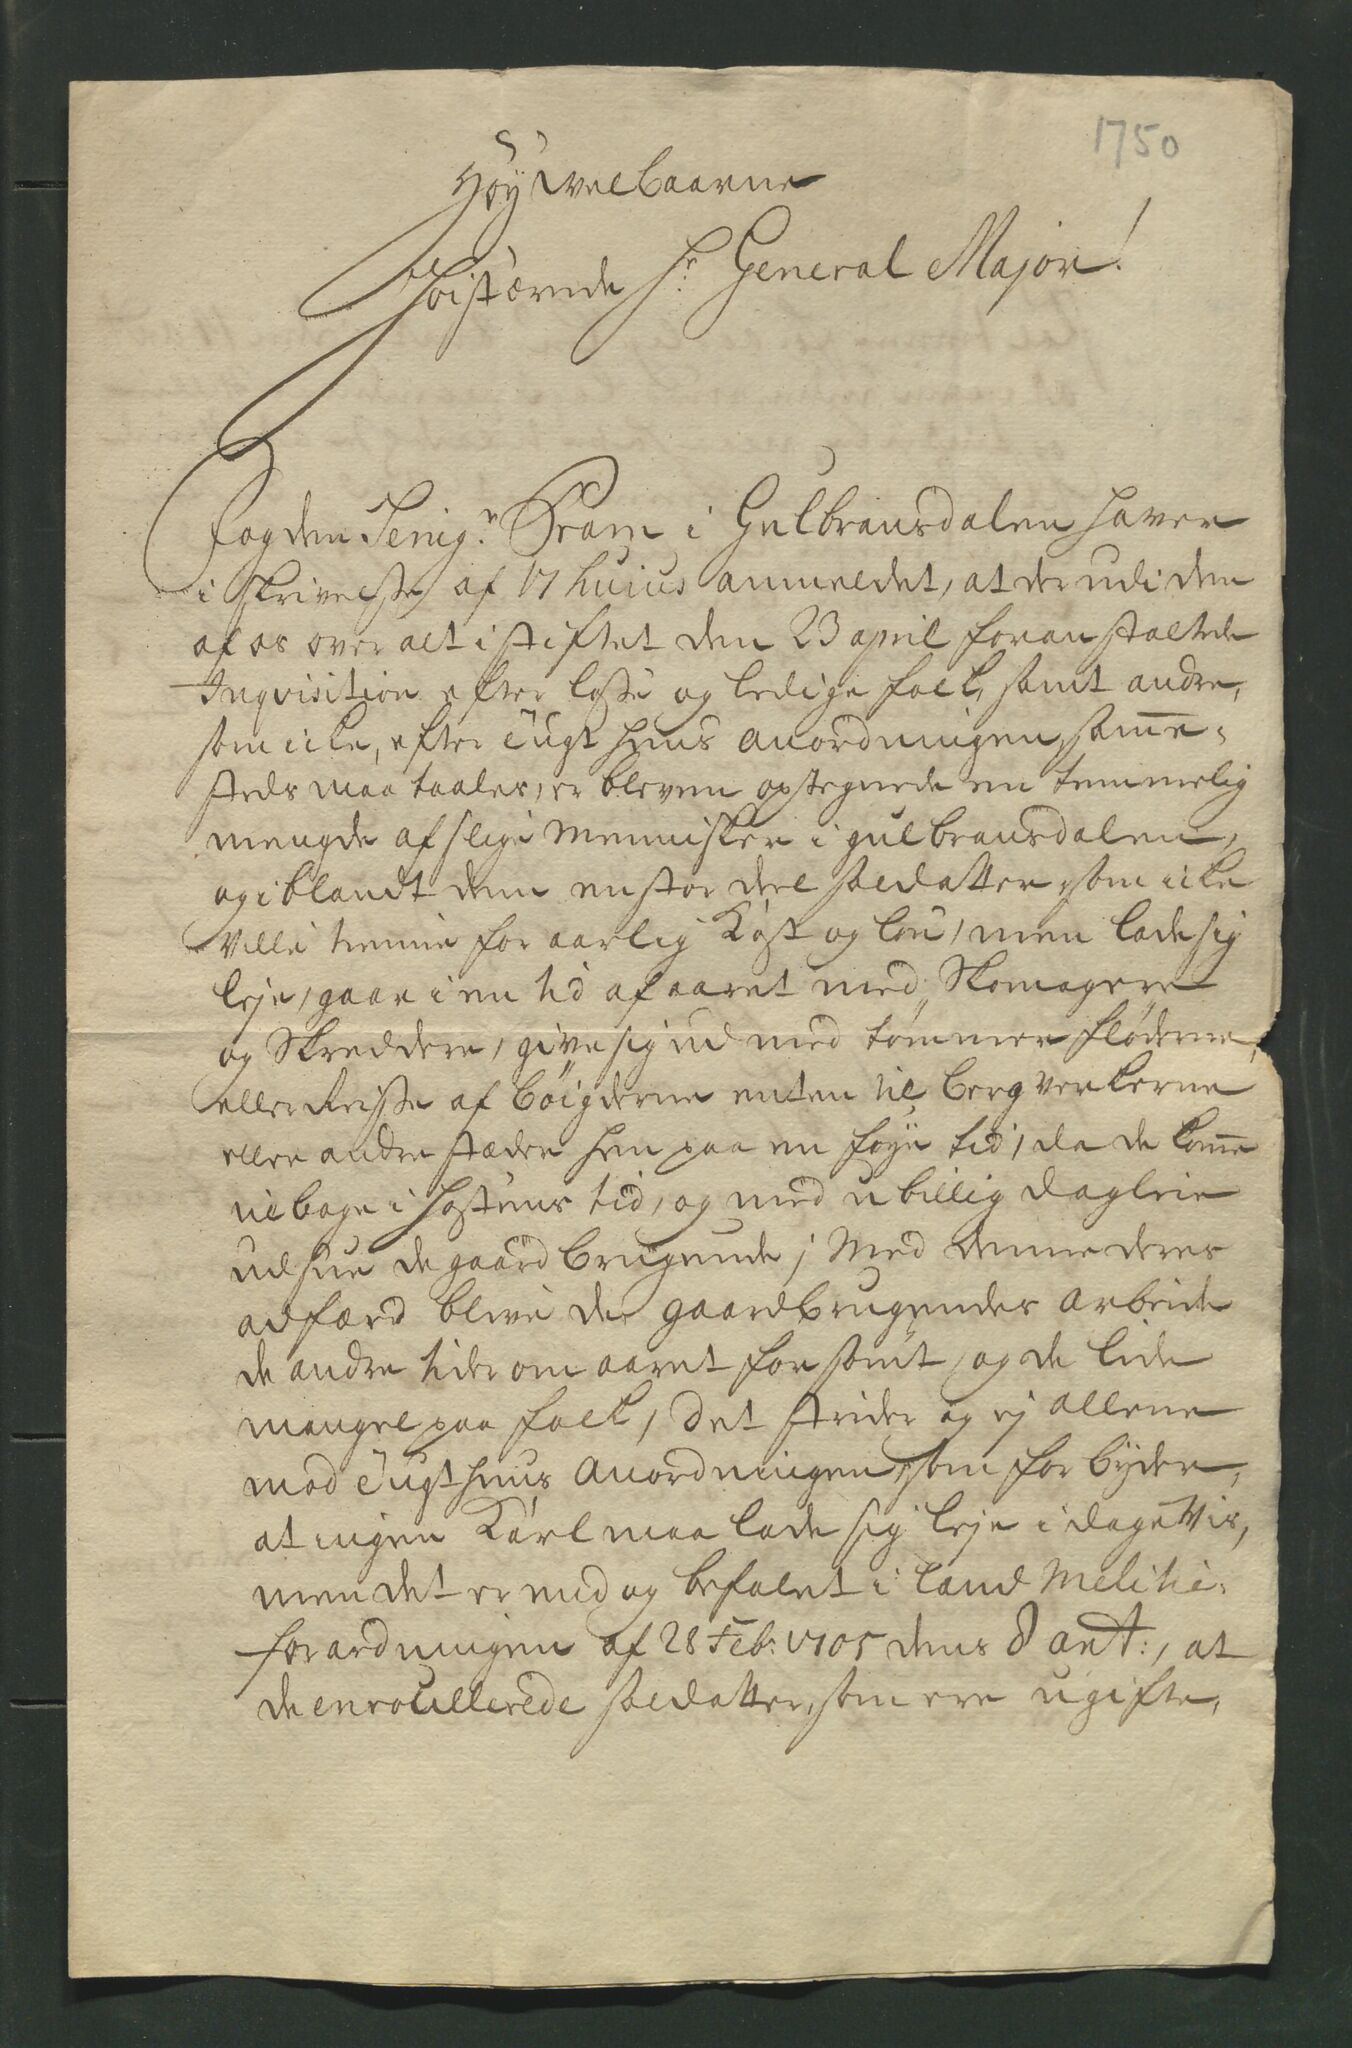 1750
Høÿ Welbaarne
Høistærede Hr: General Major!
Fogden Senigr: Pram i Gulbransdalen haver
i skrivelse af 17 huius anmeldet, at der udi den
af os over alt i stiftet den 23 april foranstaltede
Inqvisition efter løse og ledige folk, samt andre,
som icke, efter tugthuus anordningen, samme-
steds maa taales, er bleven optegnede en temmelig
mengde af slige Mennisker i gulbransdalen,
og iblandt dem en stor deel soldatter, som icke
Ville tienne for aarlig Kost og løn, men lade sig
leje, gaar i en tid af aaret med Skomagere
og Skreddere, give sig ud med tømmer fløderne,
eller Reisse af bøigderne enten til bergverkerne
eller andre stæder hen paa en føye tid, da de komme
tilbage i høstens tid, og med ubillig dagleie
udsue de gaardbrugende; Med denne deres
adfærd blive de gaardbrugendes arbeide
de andre tider om aaret forsømt, og de lide
mangel paa folk, det strider og ej allene
mod tugthuus anordningen, som forbyder,
at ingen Karl maa lade sig leje i dage Vis,
men det er end og befalet i land Militie-
forordningen af 28 Feb: 1705 dens 8 art:, at
de enroullerede soldatter, som ere ugifte,